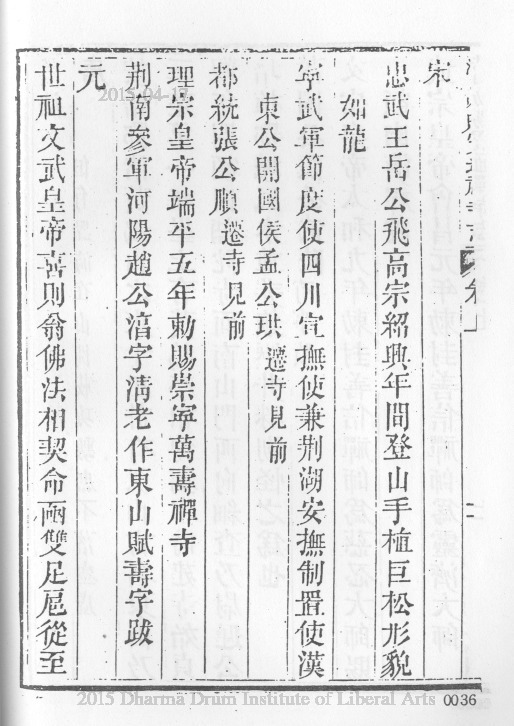 卷一
宋
忠武王岳公飛高宗紹興年間登山手植巨松形貌
如龍
寧武軍節度使四川宣撫使兼荆湖安撫制置使漢
東公開國侯孟公珙 遷寺見前
都統張公順 遷寺見前
理宗皇帝端平五年勅賜崇寧萬壽禪寺
荆南參軍河陽趙公淯字清老作東山賦壽字跋
元
世祖文武皇帝喜則翁佛法相契命函雙足巵從至
2015-04-17
2015 Dharma Drum Institute of Liberal Arts
0036